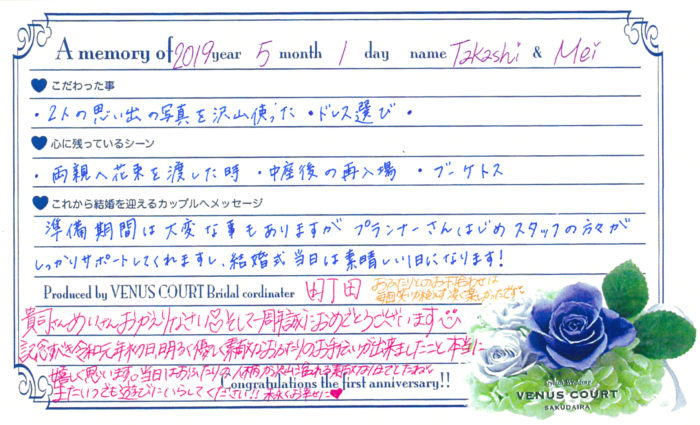 A memory of 2019 year 5 month 1 day name Takashi & Mei
こだわった事
・2人の思い出の写真を沢山使った ・ドレス選び・
心に残っているシーン
・両親へ花束を渡した時 ・中座後の再入場 ・ブーケトス
これから結婚を迎えるカップルへメッセージ
準備期間は大変な事もありますが プランナーさんはじめスタッフの方々が
しっかりサポートしてくれますし、結婚式当日は素晴しい1日になります!
Produced by VENUS COURT Bridal cordinater 町田
おふたりとのお手合わせは
毎回笑いが絶えず凄く楽しかったです
貴司さんめいさんおかえりなさい そして一周年誠におめでとうございます
記念すべき令和元年初日明るく優しく素敵なおふたりのお手伝いが出来ましたこと本当に
嬉しく思います。当日はおふたりの人柄が沢山溢れる素敵な1日でしたね
またいつでも遊びにいらしてください!! 末永くお幸せに♥
Congratulations the first anniversary!!
VENUS COURT
SAKUDAIRA